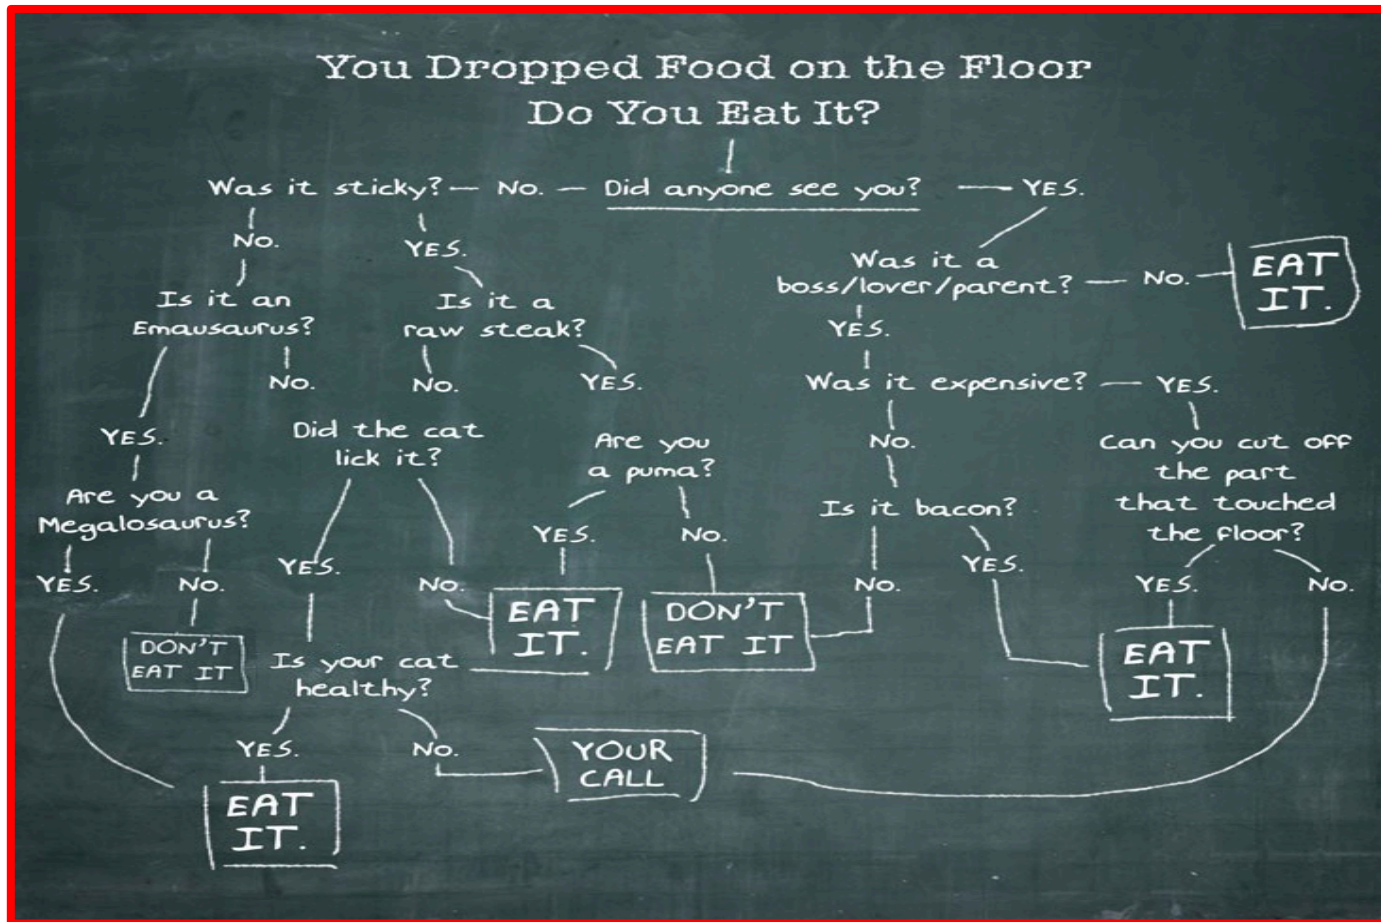 You Dropped Food on the Floor
Do You Eat It?
Was it sticky? NO. Did anyone see you? YES.
NO.
YES.
Was it a
boss/lover/parent?
NO.
EAT
IT.
Is it an
Emausaurus?
Is it a
raw steak?
YES.
NO.
NO.
YES.
Was it expensive?
YES.
YES.
Did the cat
lick it?
Are you
a puma?
NO.
Can you cut off
the part
that touched
the floor?
Are you a
Megalosaurus?
Is it bacon?
YES.
NO.
YES.
NO.
YES.
NO.
NO.
YES.
YES.
NO.
DON'T
EAT IT
EAT
IT.
DON'T
EAT IT
EAT
IT.
Is your cat
healthy?
YES.
NO.
YOUR
CALL
EAT
IT.